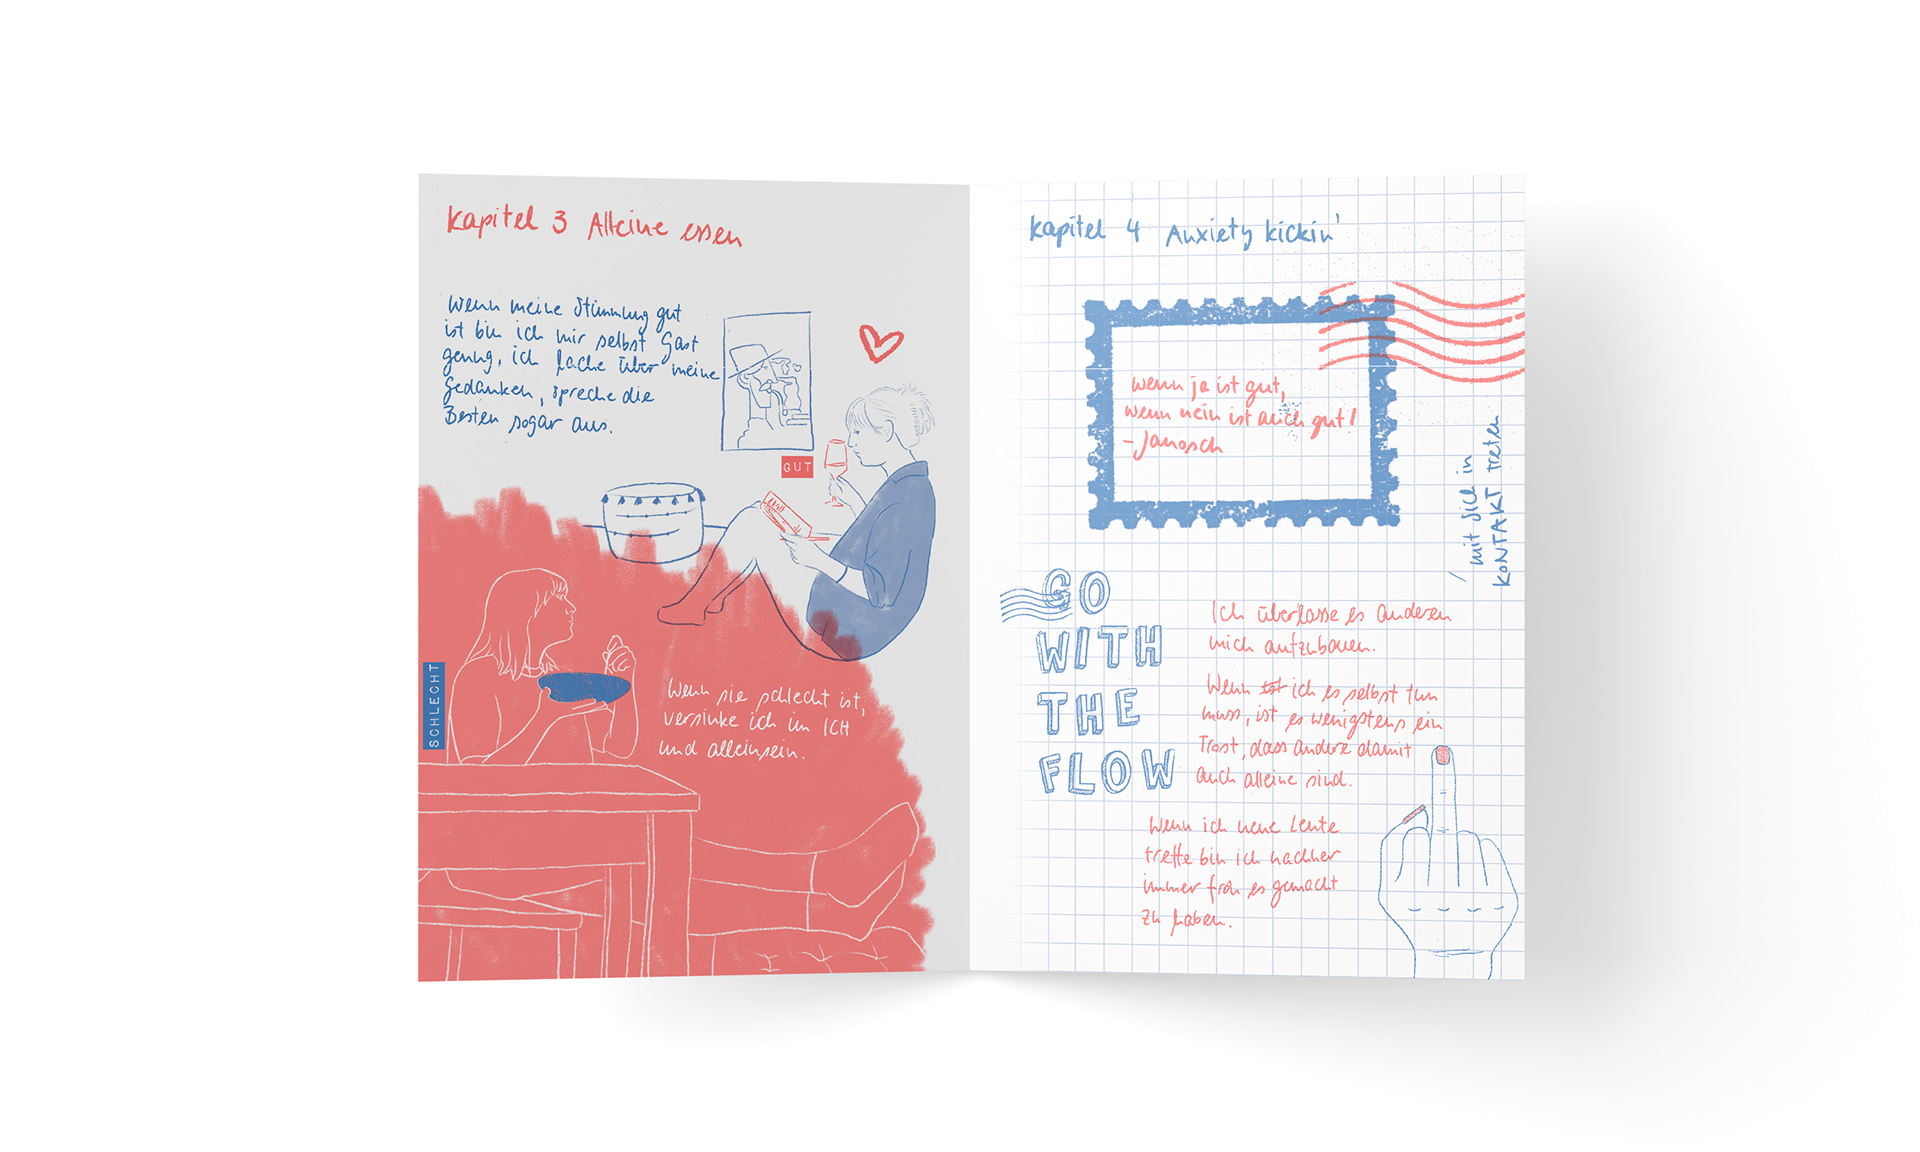 Kapitel 3 Alleine essen
Wenn meine Stimmung gut
ist bin ich mir selbst Gast
genug, ich lache über meine
Gedanken, spreche die
Besten sogar aus.
GUT
SCHLECHT
Wenn sie schlecht ist,
versinke ich im ICH
und alleinsein.
Kapitel 4 Anxiety kickin'
wenn ja ist gut,
wenn nein ist auch gut!
- Janosch
mit sich in
KONTAKT treten
GO
WITH
THE
FLOW
Ich überlasse es anderen
mich aufzubauen.
Wenn ist ich es selbst tun
muss, ist es wenigstens ein
Trost, dass andere damit
auch alleine sind.
Wenn ich neue Leute
treffe bin ich nachher
immer froh es gemacht
zu haben.